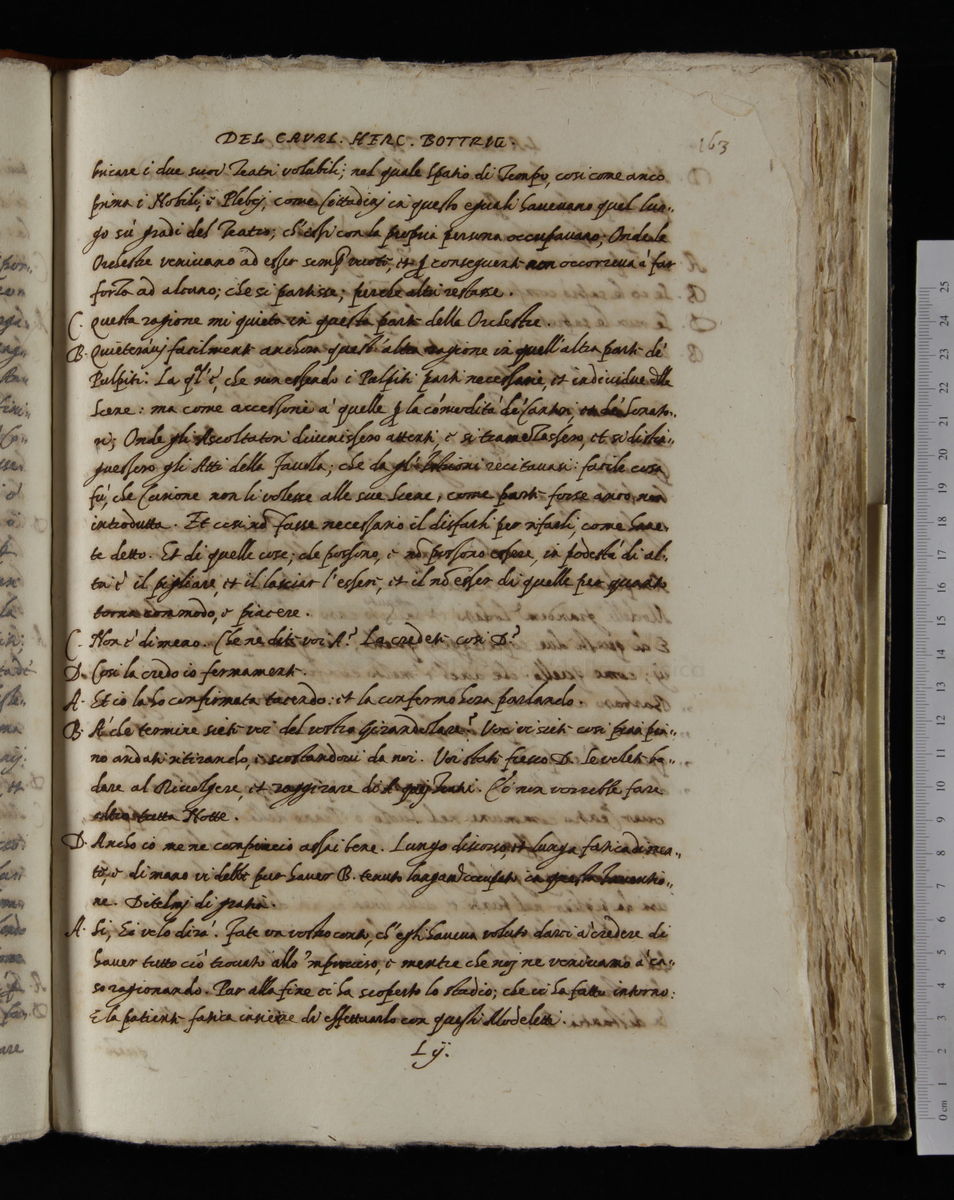 DEL CAVAL. HERC. BOTTRIG. 163
bricare i due suoi Teatri volubili; nel quale spatio di Tempo, cosi come anco
prima i Nobili, e Plebej, come Cittadini in questo eguali havevano quel luo-
go sù gradi del Teatro; ch'essi con la propria persona occupavano; Onde le
Orchestre venivano ad esser sempre et conseguent non occorreva à far
forza ad alcuno; che si partisse; perche altri restasse.
C. Questa ragione mi quieta in questa part della Orchestre.
B. facilment anchora quest'altra ragione in quell'altra part de'
Pulpiti. La ql'è, che non essendo i Pulpiti parti necessarie, et individue
Scene: ma come accessorie a' quelle la cómodità dé Cantori et dé Sonato-
ri; Onde gli Ascoltatori divenissero attenti, e si et si disti-
guessero gli Atti della Favola; che da gli Istrioni recitavasi: facile cosa
fù, che Curione non li volesse alle sue Scene, come parti forse anco non
introdutta. Et cosi nō fusse necessario il disfarli per rifarli, come have-
te detto. Et di quelle cose; che possono, e nō possono essere, in podestà di al-
tri è il pigliare, et il lasciar l'esseri, et il nō esser di quelle per quanto
torna commodo, e piacere.
C. Non è di meno. Che ne diti voi A? La credeti cosi D?
D. Cosi la credo io fermament.
A. Et io la ho confirmata tacendo: et la confermo hora parlando.
B. A' che termine sieti voi del vostro Girandolare? Voi vi sieti cosi pian pia-
no andati ritirando, e scostandovi da noi. Voi stati fresco D. se voleti ba-
dare al Rivolgere, et raggirare di A. Ch'è non vorrebbe fare
altro tutta Notte.
D. Ancho io me ne compiaccio assai bene. Lungo discorso, et lunga fatica di men-
te, e di mano vi debbe pur haver B. tenuto occupato in questa Inventio-
ne. Ditelmi di gratia.
A. Si, Ei velo dirà. Fate un vostro conto, ch'egli haveva voluto darci à credere di
haver tutto ciò trovato allo 'mproviso, e mentre che noi ne venivamo à ca-
so ragionando. Pur alla fine ci ha scoperto lo studio; che ci ha fatto intorno:
E la patient fatica insieme di effettuarlo con questi Modeletti.
L ij.